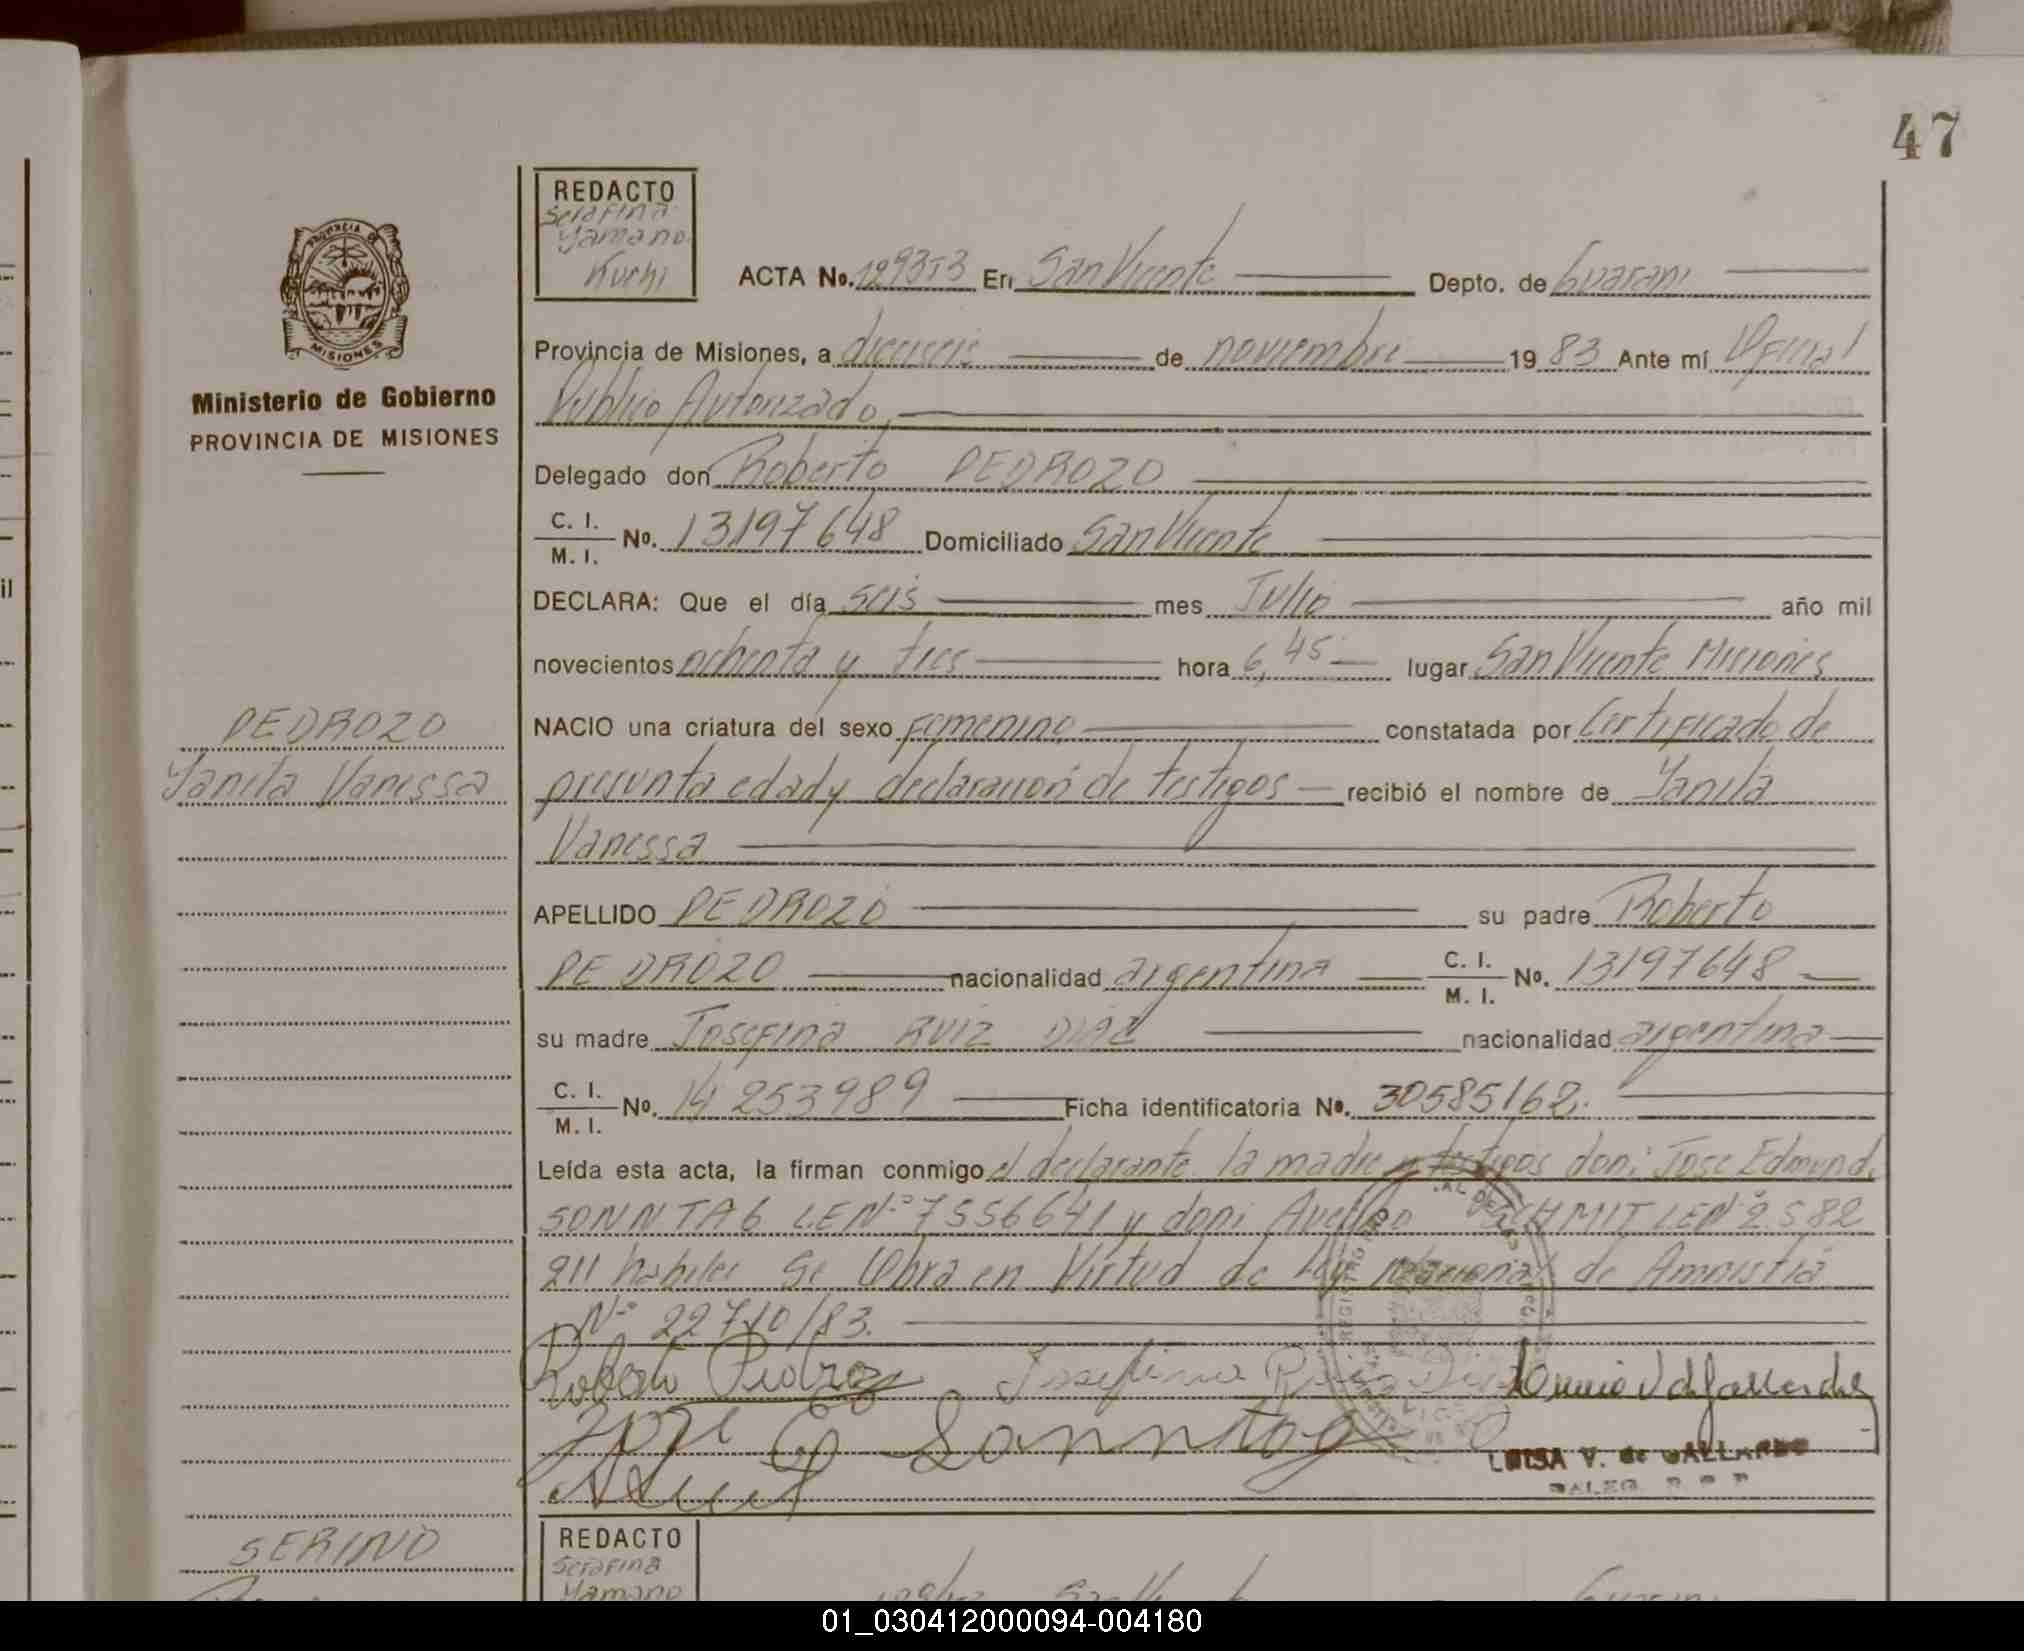 47
REDACTO
Serafina
Yamano
Kuchi
PROVINCIA DE
MISIONES
Ministerio de Gobierno
PROVINCIA DE MISIONES
ACTA No. 129353 En San Vicente Depto. de Guarani
Provincia de Misiones, a dieciseis de noviembre 1983 Ante mí Oficial
Publico Autorizado
Delegado don Roberto PEDROZO
C. I. / M. I. No. 13197648 Domiciliado San Vicente
DECLARA: Que el día seis mes Julio año mil
novecientos ochenta y tres hora 6,45 lugar San Vicente Misiones
NACIO una criatura del sexo femenino constatada por Certificado de
presunta edad y declaración de testigos recibió el nombre de Yanila
Vanessa
PEDROZO
Yanila Vanessa
APELLIDO PEDROZO su padre Roberto
PEDROZO nacionalidad argentina C. I. / M. I. No. 13197648
su madre Josefina RUIZ DIAZ nacionalidad argentina
C. I. / M. I. No. 14253989 Ficha identificatoria No. 30585162
Leída esta acta, la firman conmigo el declarante la madre y testigos don: Jose Edmund
SONNTAG LE Nº 7556641 y don: Avelino SCHMIT LE Nº 2.582
211 habiles Se Obra en Virtud de Ley Nacional de Amnistia
Nº 22710/83.
Roberto Pedrozo Josefina Ruiz Diaz
Jose E Sonntag
LUISA V. de GALLARDO
SERINO
REDACTO
Serafina
Yamano
01_030412000094-004180